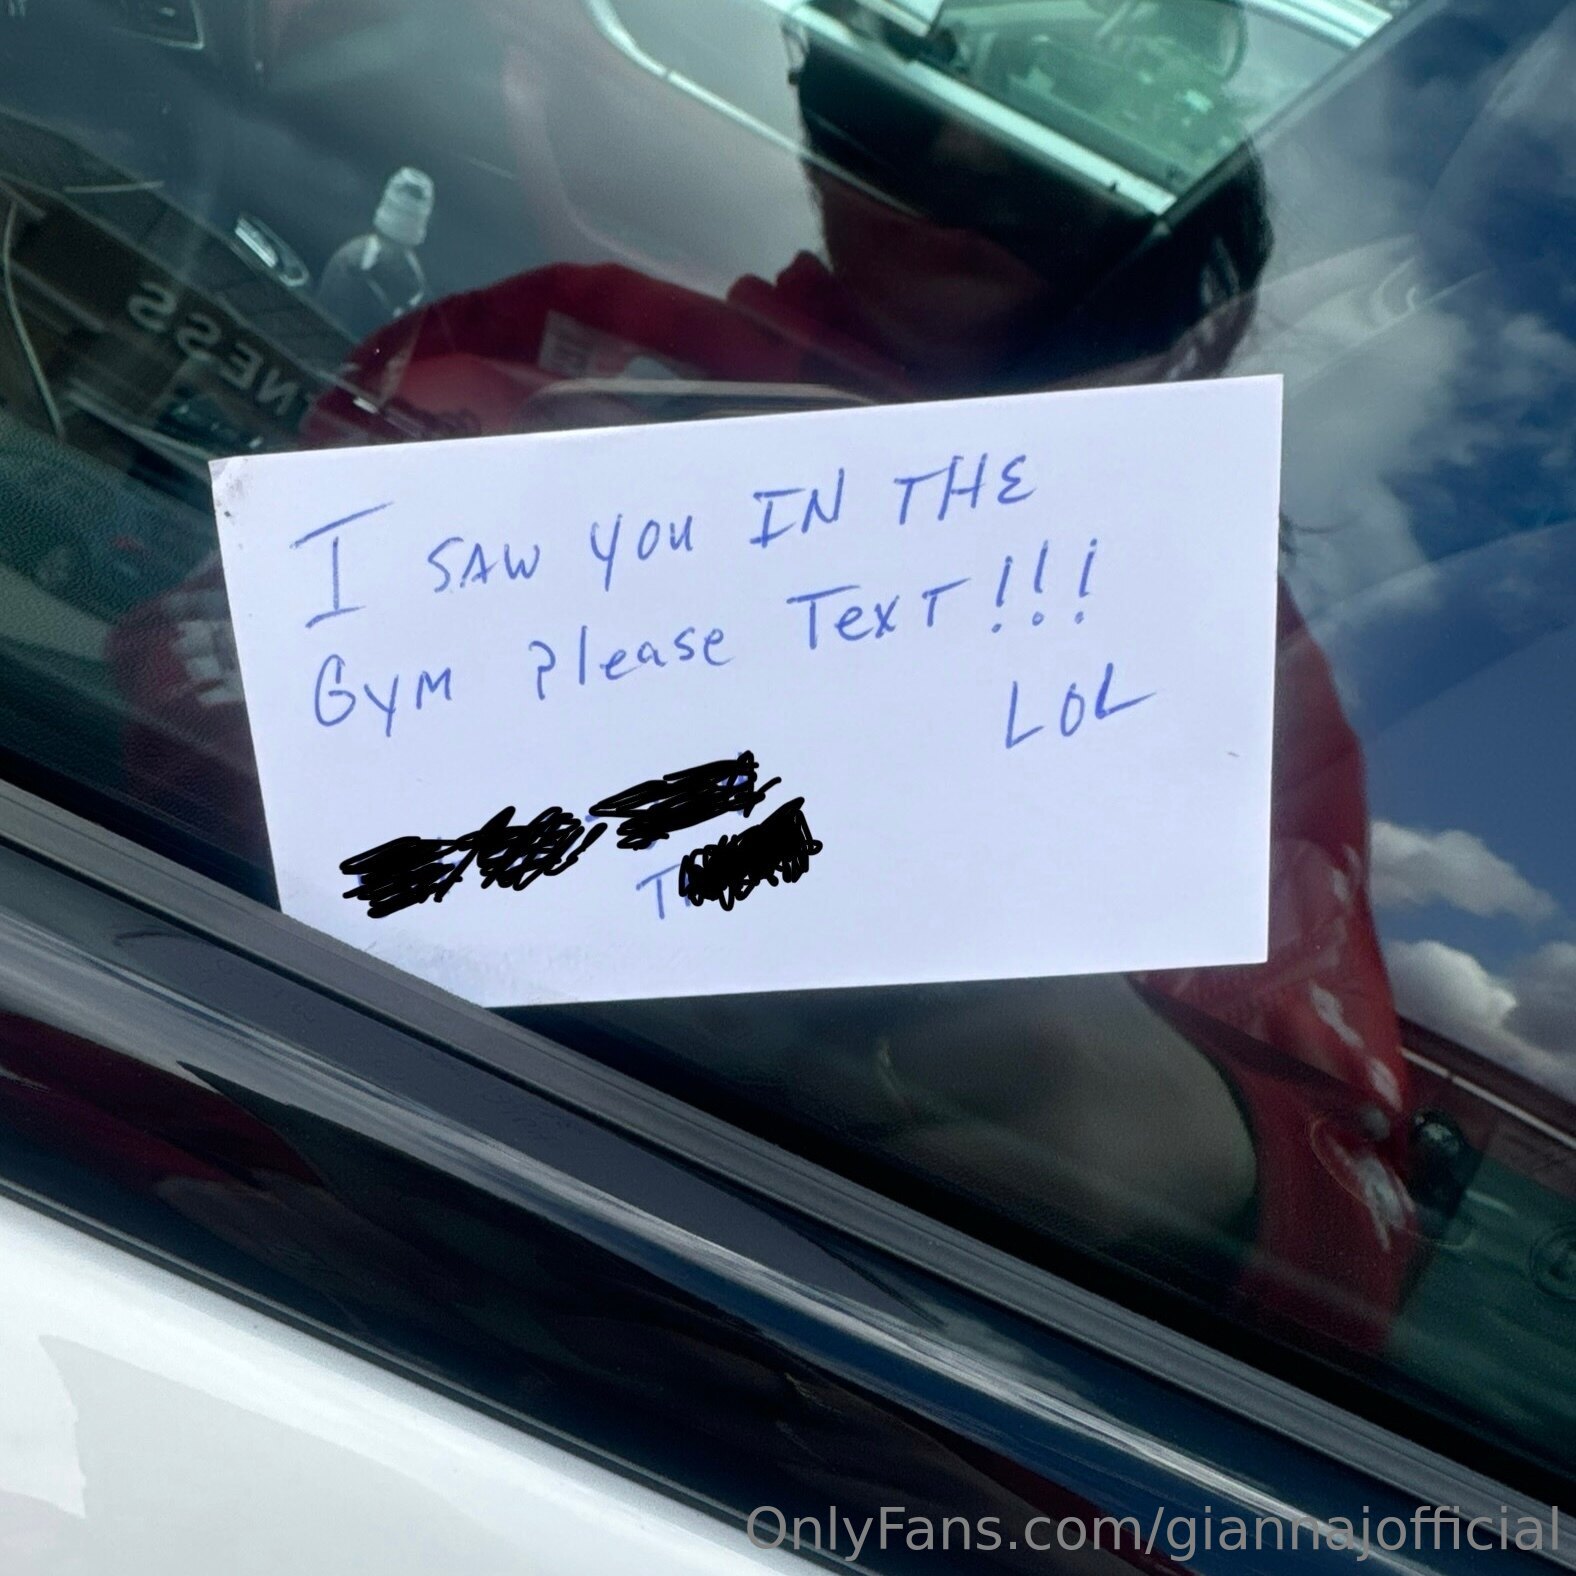 I SAW YOU IN THE
GYM Please Text!!!
LOL
T
NESS
OnlyFans.com/giannajofficial